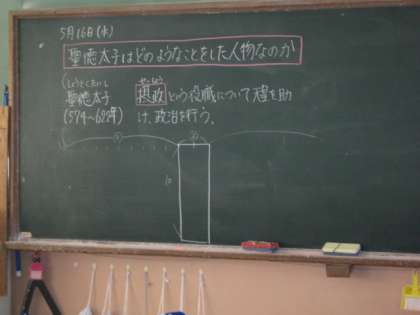 5月16日(水)
聖徳太子はどのようなことをした人物なのか
しょうとくたいし
せっしょう
聖徳太子 摂政という役職について天皇を助
(574〜622年) け、政治を行う。
10